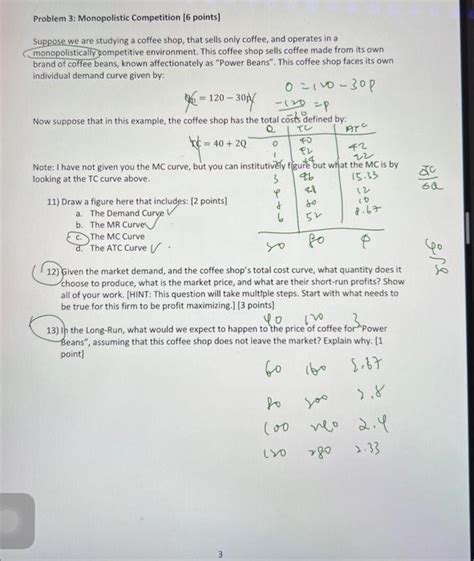 Problem 3: Monopolistic Competition [6 points]
Suppose we are studying a coffee shop, that sells only coffee, and operates in a
monopolistically competitive environment. This coffee shop sells coffee made from its own
brand of coffee beans, known affectionately as "Power Beans". This coffee shop faces its own
individual demand curve given by:
0 = 120 - 30P
= 120 – 30P
-120 = P
-30
Now suppose that in this example, the coffee shop has the total costs defined by:
Q TC ATC
TC = 40 + 2Q
0 40
1 42 42
2 44 22
Note: I have not given you the MC curve, but you can institutively figure out what the MC is by
looking at the TC curve above.
3 46 15.33
12
10
6 52 8.67
11) Draw a figure here that includes: [2 points]
a. The Demand Curve
b. The MR Curve
c. The MC Curve
d. The ATC Curve
80
12) Given the market demand, and the coffee shop's total cost curve, what quantity does it
choose to produce, what is the market price, and what are their short-run profits? Show
all of your work. [HINT: This question will take multiple steps. Start with what needs to
be true for this firm to be profit maximizing.] [3 points]
40 120 3
13) In the Long-Run, what would we expect to happen to the price of coffee for "Power
Beans", assuming that this coffee shop does not leave the market? Explain why. [1
point]
60 160
80 200
100 240 2.4
120 280 2.33
3